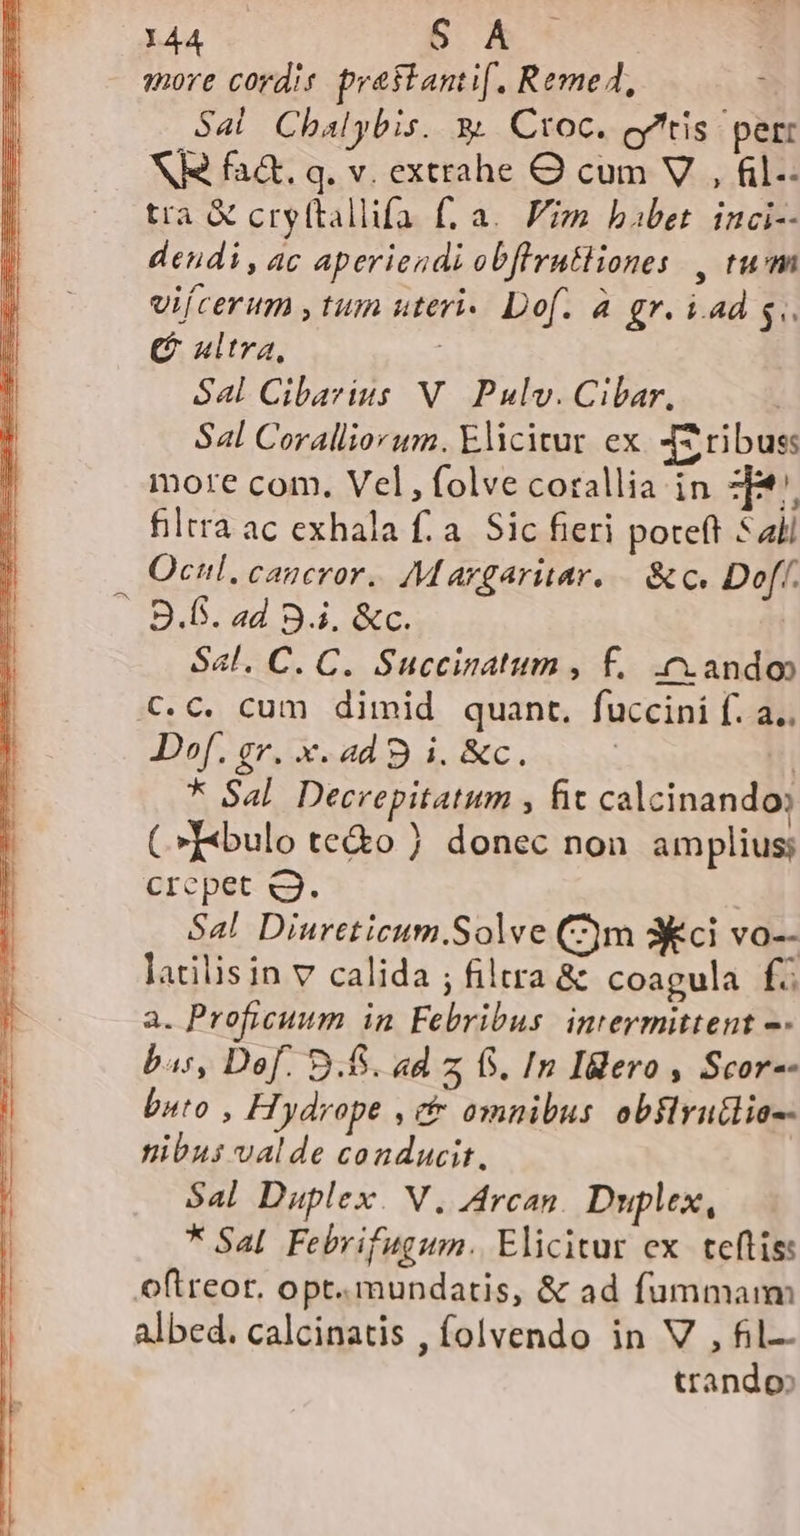 144 S A
more cordis præstantiſ. Remed,
Sal Chalybis. ℞. Croc. ♂tis per
fact. q. v. extrahe 🜔 cum 🜄 , fil-
tra & cryſtalliſa ſ. a. Vim habet inci-
dendi, ac aperiendi obſtructiones , tum
viſcerum , tum uteri. Doſ. à gr. i. ad ʒ.
& ultra,
Sal Cibarius V Pulv. Cibar.
Sal Coralliorum. Elicitur ex ribus
more com. Vel, ſolve corallia in
filtra ac exhala ſ. a Sic fieri poteſt Sal
Ocul. cancror. Margaritar. &c. Doſ.
℈.ß. ad ℈.i. &c.
Sal. C. C. Succinatum , f. ando
C. C. cum dimid quant. ſuccini ſ. a.
Doſ. gr. x. ad ℈ i. &c.
* Sal Decrepitatum , fit calcinando
( bulo tecto ) donec non amplius
crepet 🜔.
Sal Diureticum. Solve m ci vo-
latilis in 🜄 calida ; filtra & coagula ſ.
a. Proficuum in Febribus intermittent -
bus, Doſ. ℈.ß. ad ʒ ß. In Ictero , Scor-
buto , Hydrope , & omnibus obstructio-
nibus valde conducit.
Sal Duplex. V. Arcan. Duplex,
* Sal Febrifugum. Elicitur ex teſtis
oſtreor. opt. mundatis, & ad ſummam
albed. calcinatis , ſolvendo in 🜄 , fil-
trando